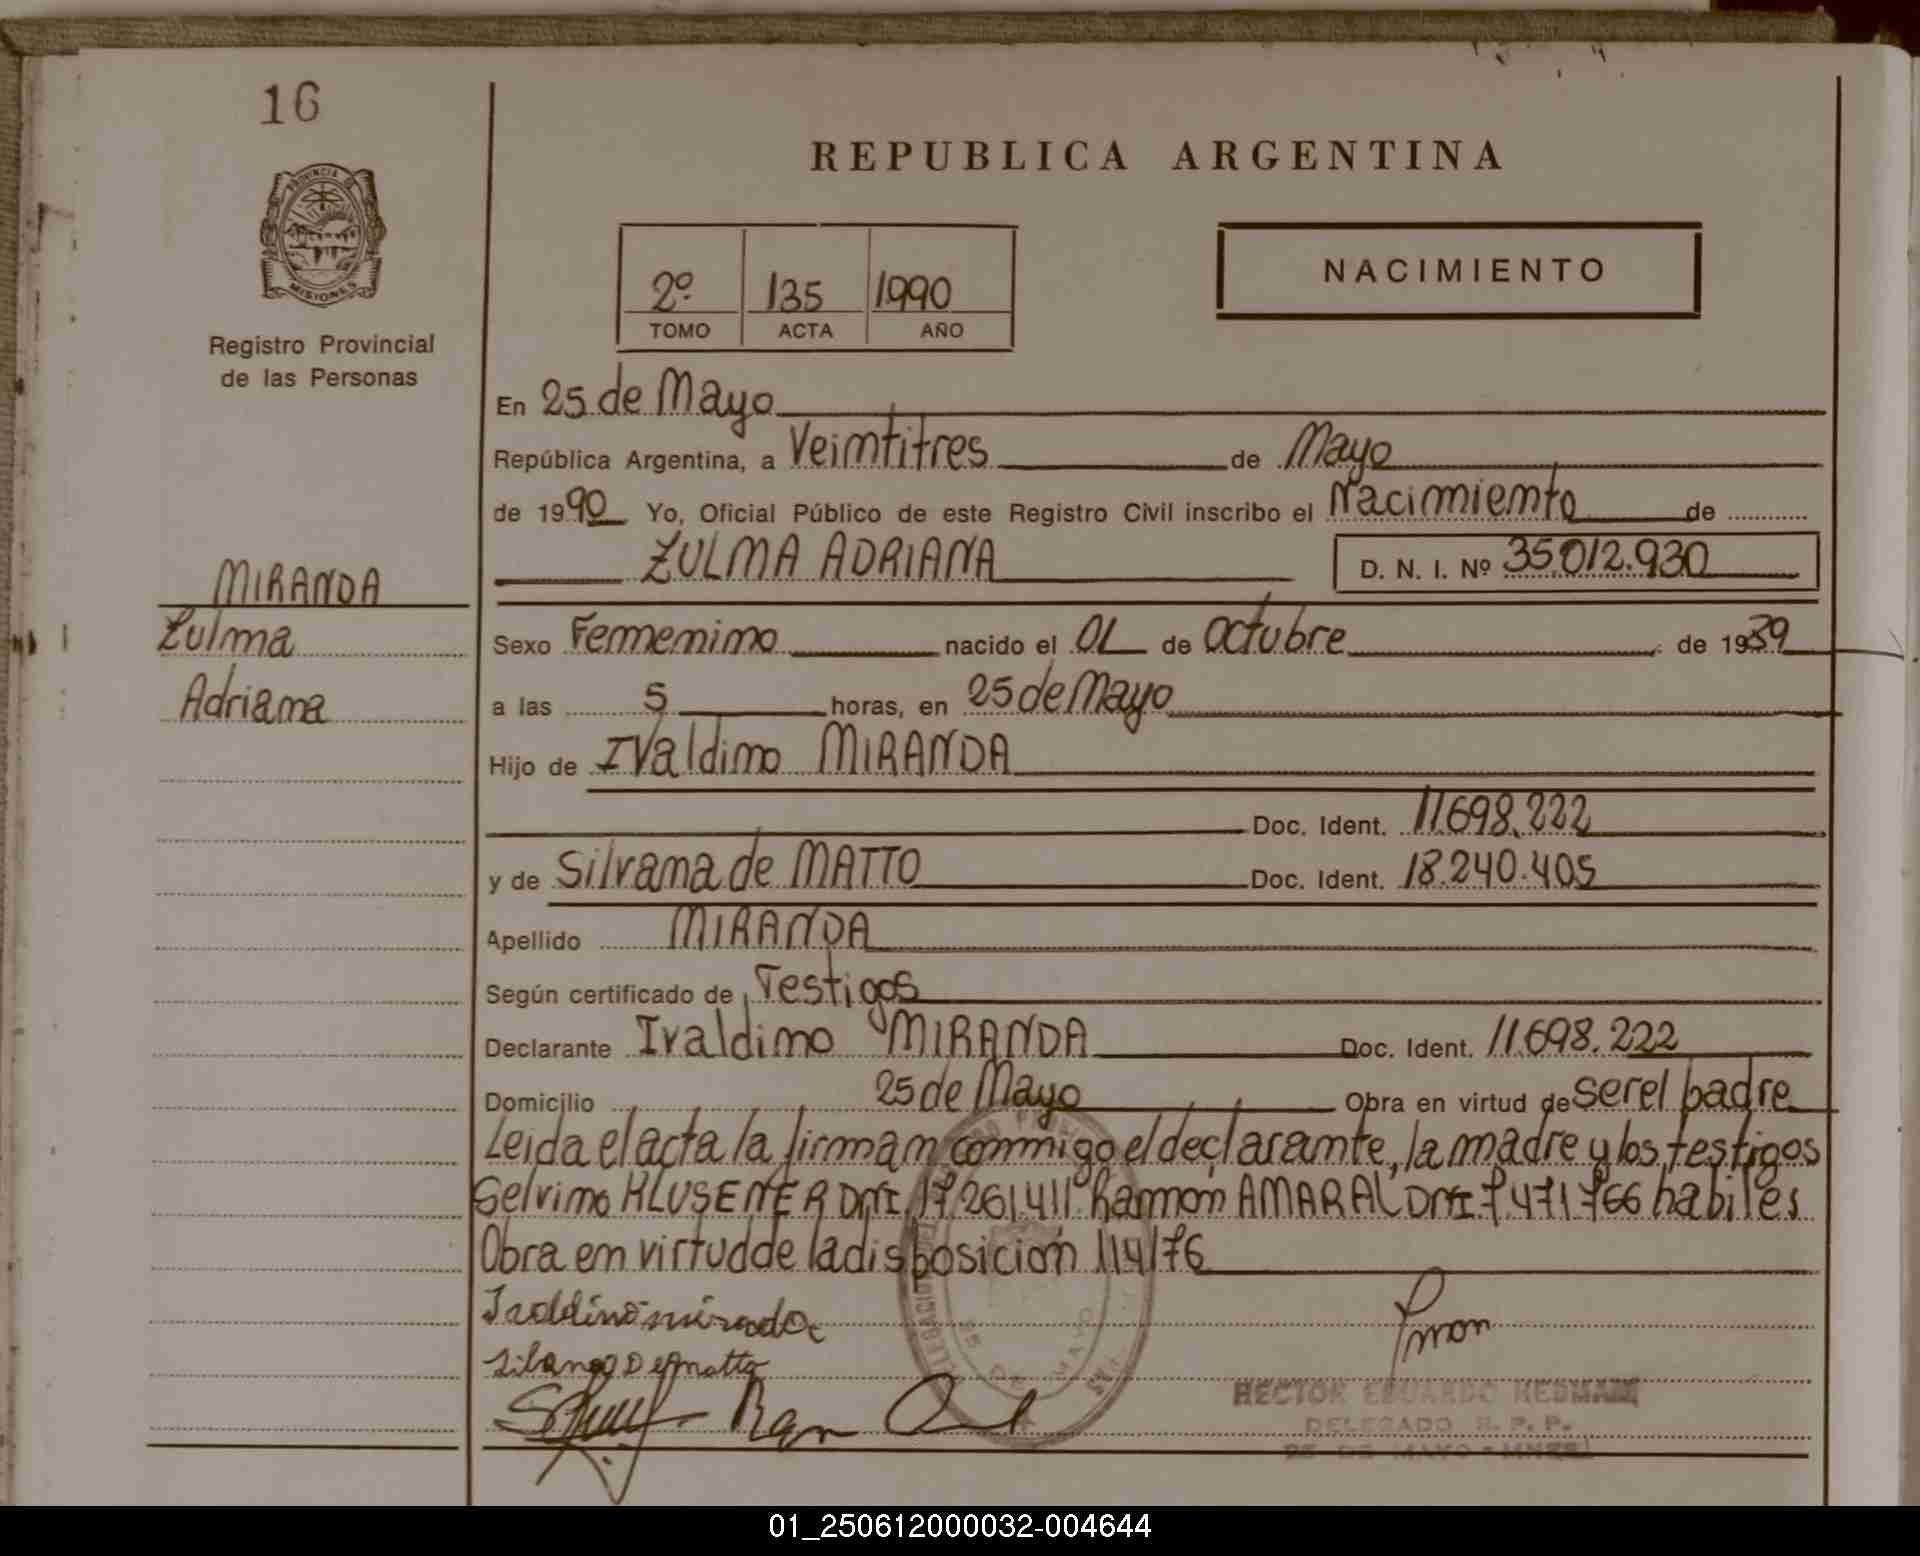 16
REPUBLICA ARGENTINA
PROVINCIA DE
MISIONES
Registro Provincial
de las Personas
2º 135 1990
TOMO ACTA AÑO
NACIMIENTO
En 25 de Mayo
República Argentina, a Veintitres de Mayo
de 1990 Yo, Oficial Público de este Registro Civil inscribo el Nacimiento de
ZULMA ADRIANA D. N. I. Nº 35.012.930
MIRANDA
Zulma
Adriana
Sexo Femenino nacido el 01 de Octubre de 1989
a las 5 horas, en 25 de Mayo
Hijo de IValdino MIRANDA
Doc. Ident. 11.698.222
y de Silvana de MATTO Doc. Ident. 18.240.405
Apellido MIRANDA
Según certificado de Testigos
Declarante Ivaldino MIRANDA Doc. Ident. 11.698.222
Domicilio 25 de Mayo Obra en virtud de ser el padre
Leida el acta la firman conmigo el declarante, la madre y los testigos
Selvino KLUSENER DNI 17.261.411 Ramon AMARAL DNI 7.471.766 habiles
Obra en virtud de la disposicion 114/76
HECTOR EDUARDO HEDMAN
DELEGADO R. P. P.
25 DE MAYO - MNES
25 DE MAYO
01_250612000032-004644